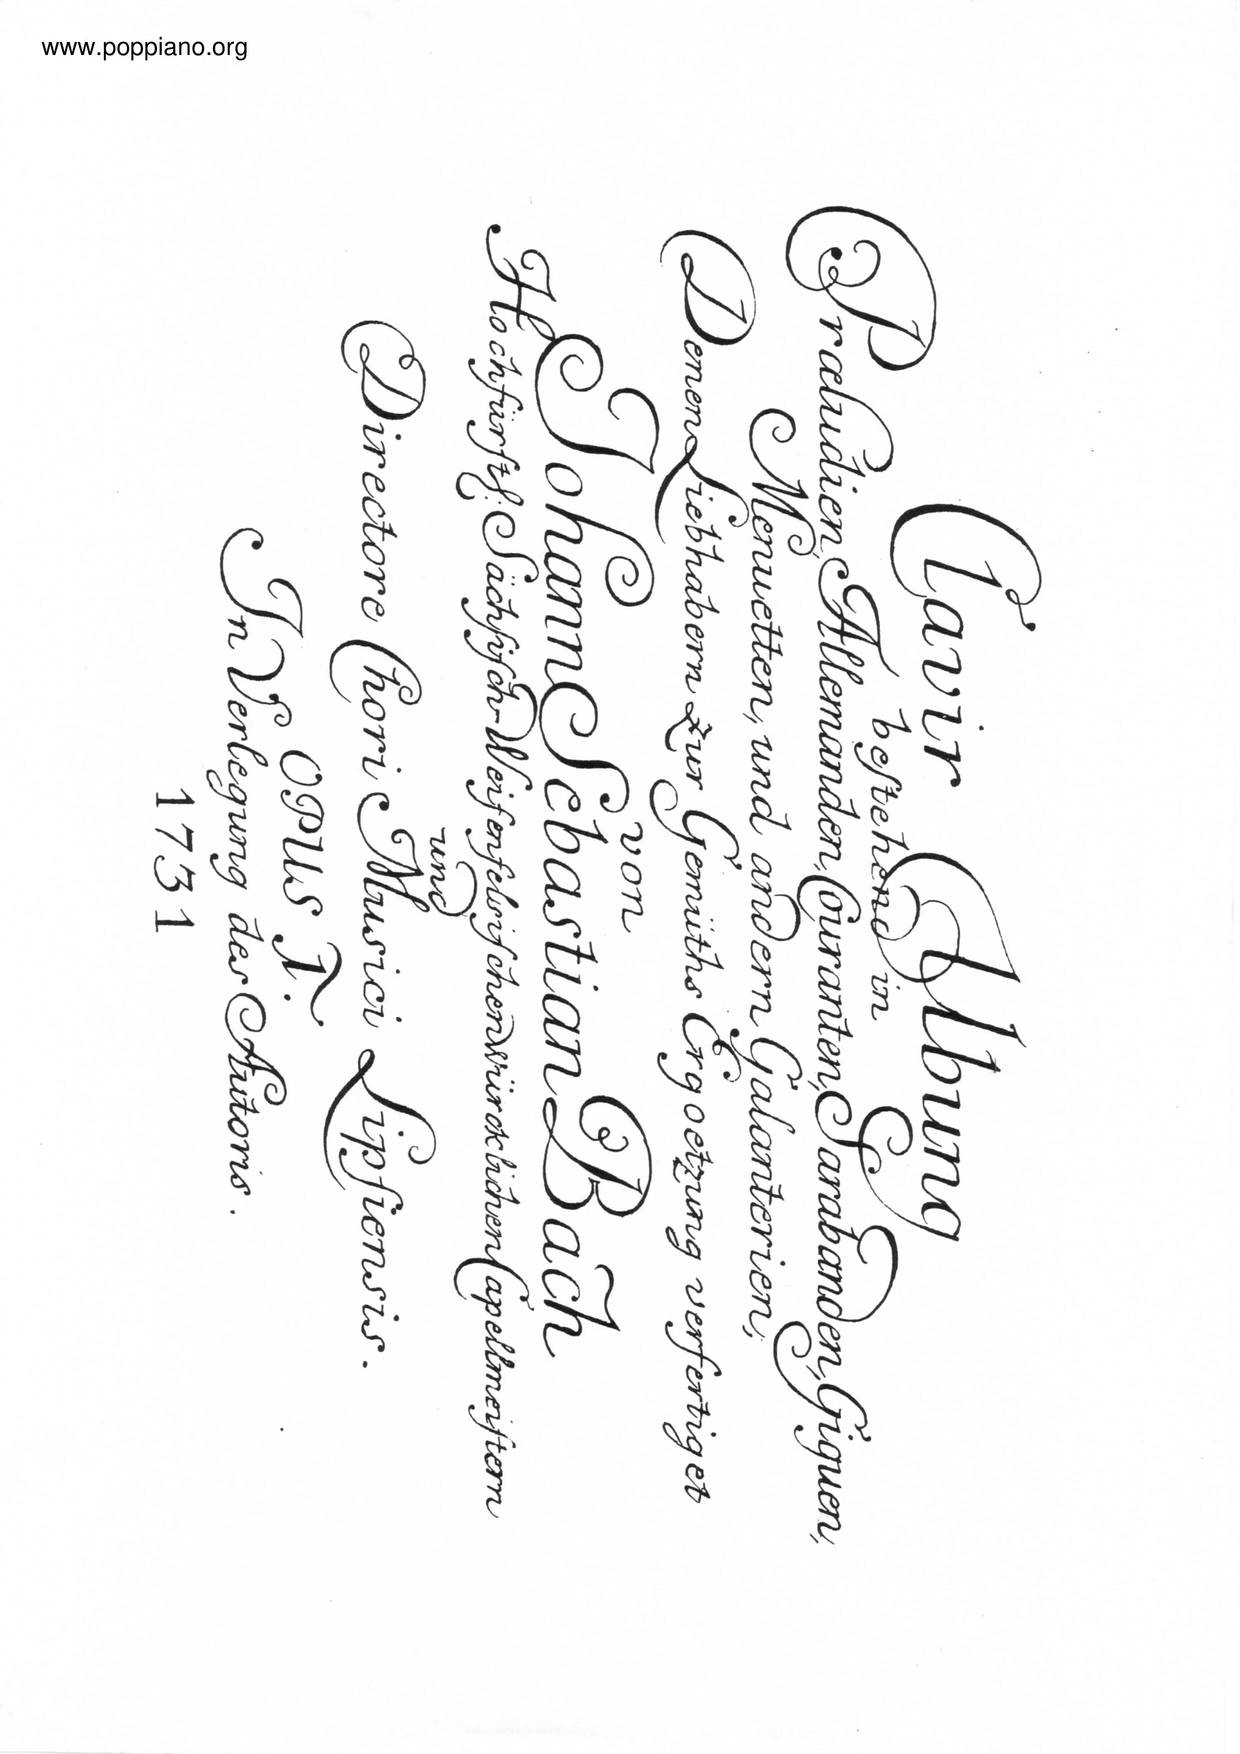 www.poppiano.org
Clavir Ubung
bestehend in
Præludien, Allemanden, Couranten, Sarabanden, Giguen,
Menuetten, und andern Galanterien;
Denen Liebhabern zur Gemüths Ergoetzung verfertiget
von
Johann Sebastian Bach
Hochfürstl: Sächsisch-Weisenfelsischen würcklichen Capellmeistern
und
Directore Chori Musici Lipsiensis.
OPUS 1.
In Verlegung des Autoris.
1731